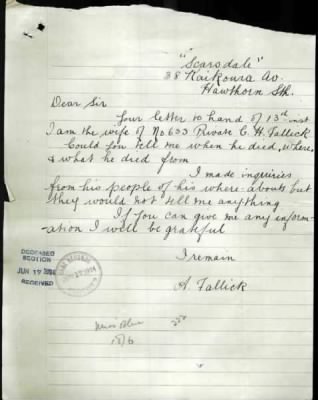 "Scarsdale"
38 Kaikoura Av.
Hawthorn Sth.
Dear Sir
Your letter to hand of 13th inst
I am the wife of No 633 Private C. H. Fallick
Could you tell me when he died, where,
& what he died from
I made inquiries
from his people of his where-abouts but
they would not tell me anything
If you can give me any inform-
-ation I will be grateful
I remain
A. Fallick
DECEASED
SECTION
JUN 17
RECEIVED
Miss
18/6